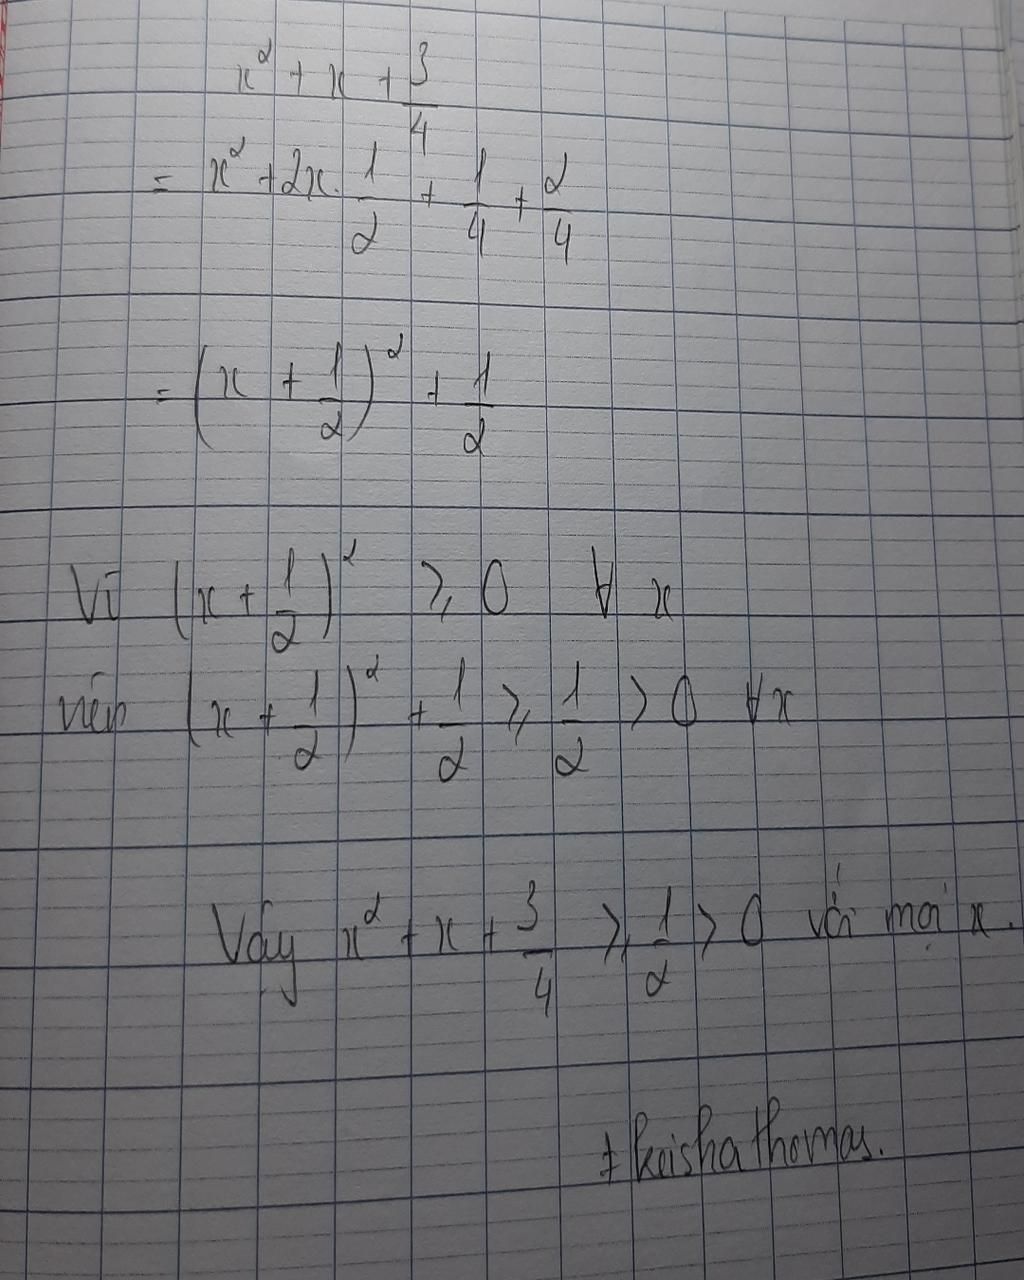 x² + x + 3/4
= x² + 2x . 1/2 + 1/4 + 2/4
= (x + 1/2)² + 1/2
Vì (x + 1/2)² ⩾ 0 ∀ x
nên (x + 1/2)² + 1/2 ⩾ 1/2 > 0 ∀x
Vậy x² + x + 3/4 ⩾ 1/2 > 0 với mọi x.
# keisha thomas.